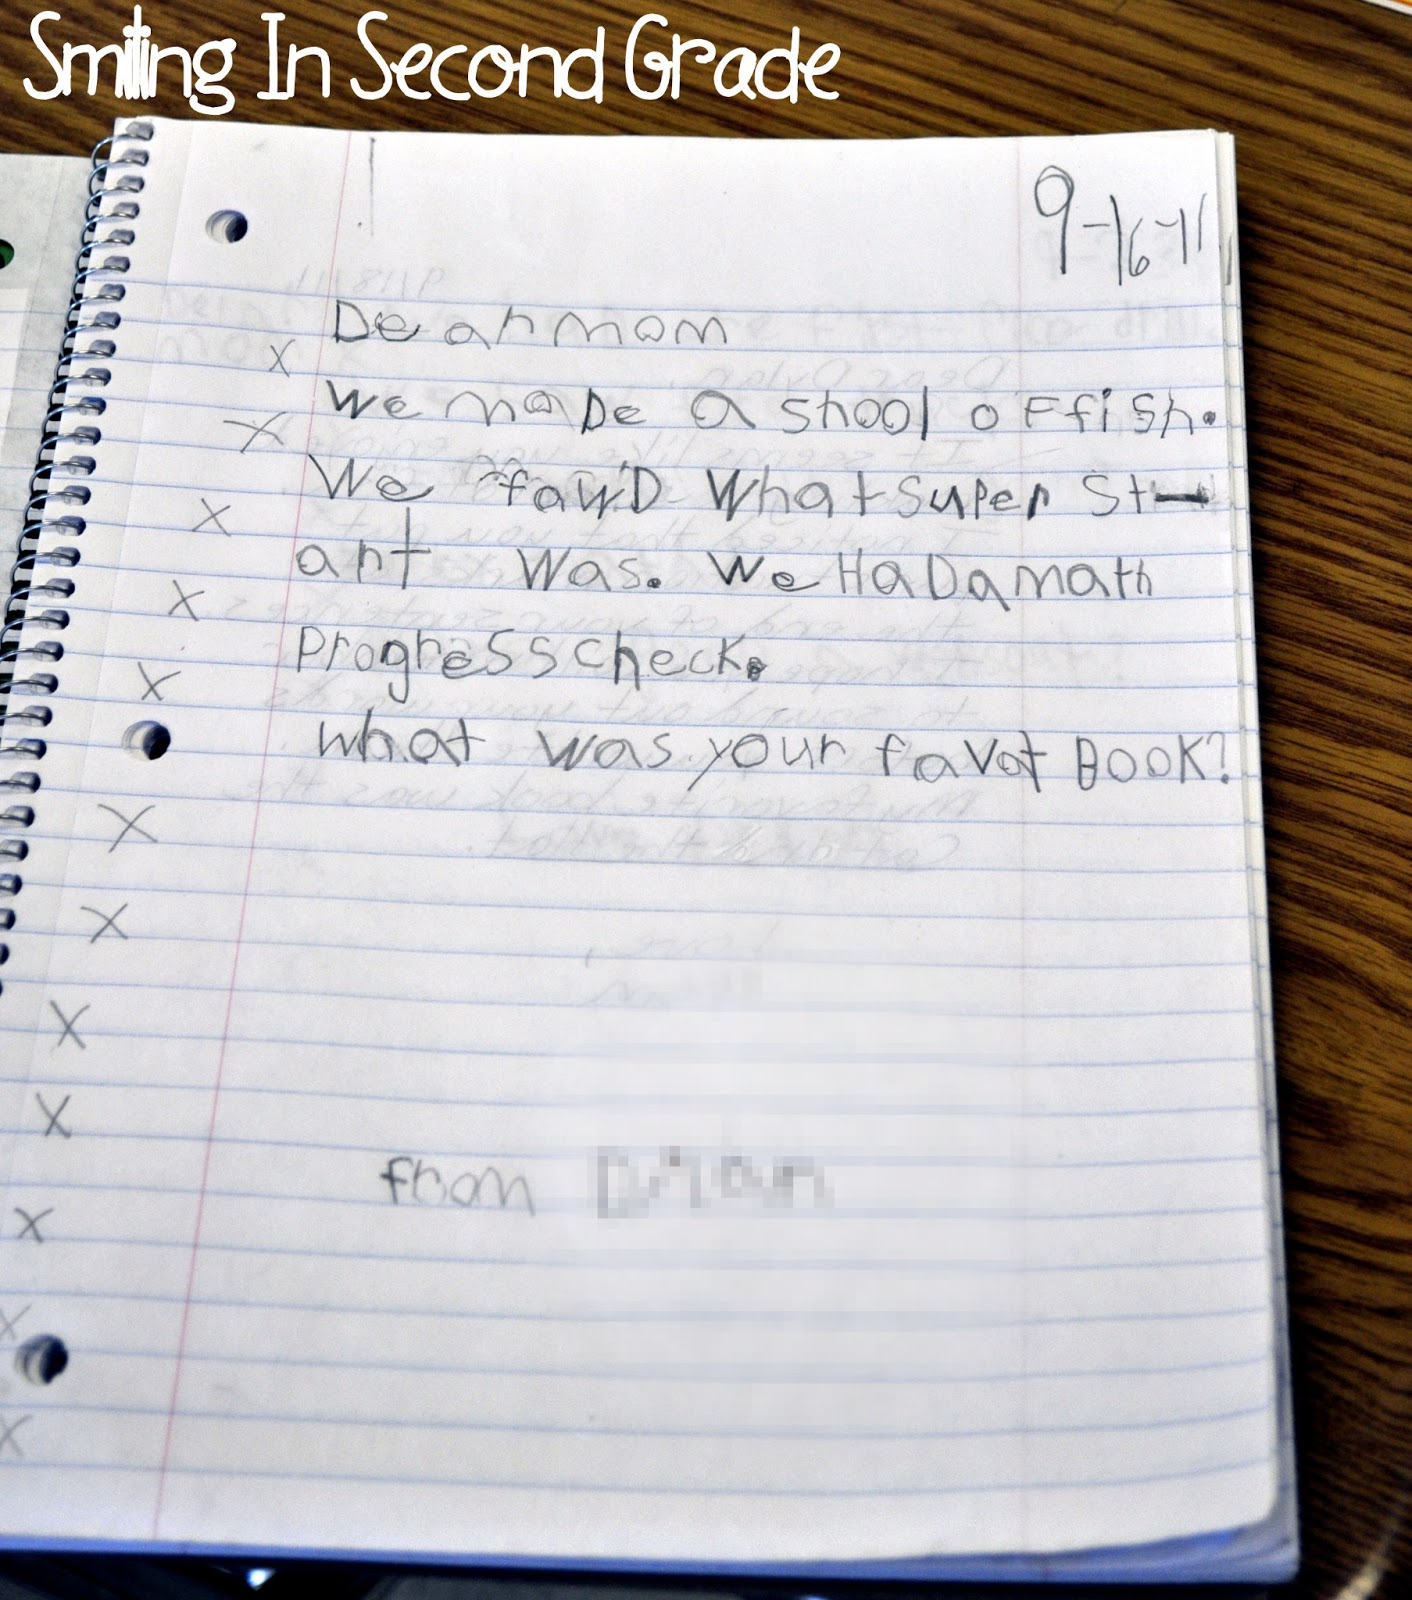 Smiling In Second Grade
9-16-11
Dear mom
We made a shool of fish.
We fawD What super St-
art was. We HaD a math
Progress check.
what was your favot Book?
from